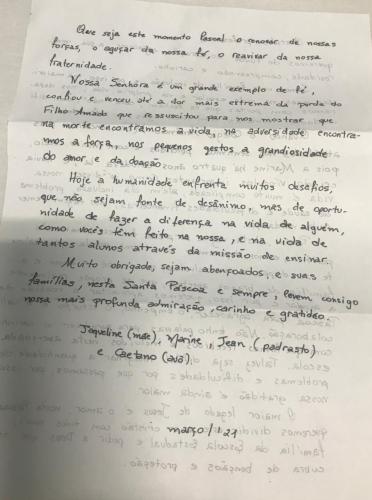 Que seja este momento Pascal o renovar de nossas
forças, o aguçar da nossa fé, o reavivar da nossa
fraternidade.
Nossa Senhora é um grande exemplo de fé,
confiou e venceu até a dor mais extrema da perda do
Filho Amado que ressuscitou para nos mostrar que
na morte encontramos a vida, na adversidade encontra-
mos a força, nos pequenos gestos a grandiosidade
do amor e da doação.
Hoje a humanidade enfrenta muitos desafios,
que não sejam fonte de desânimo, mas de oportu-
nidade de fazer a diferença na vida de alguém,
como vocês têm feito na nossa, e na vida de
tantos alunos através da missão de ensinar.
Muito obrigade, sejam abençoados e suas
famílias, nesta Santa Páscoa e sempre, levem consigo
nossa mais profunda admiração, carinho e gratidão.
Jaqueline (mãe), Marine, Jean (padrasto)
e Caetano (avô).
março/21